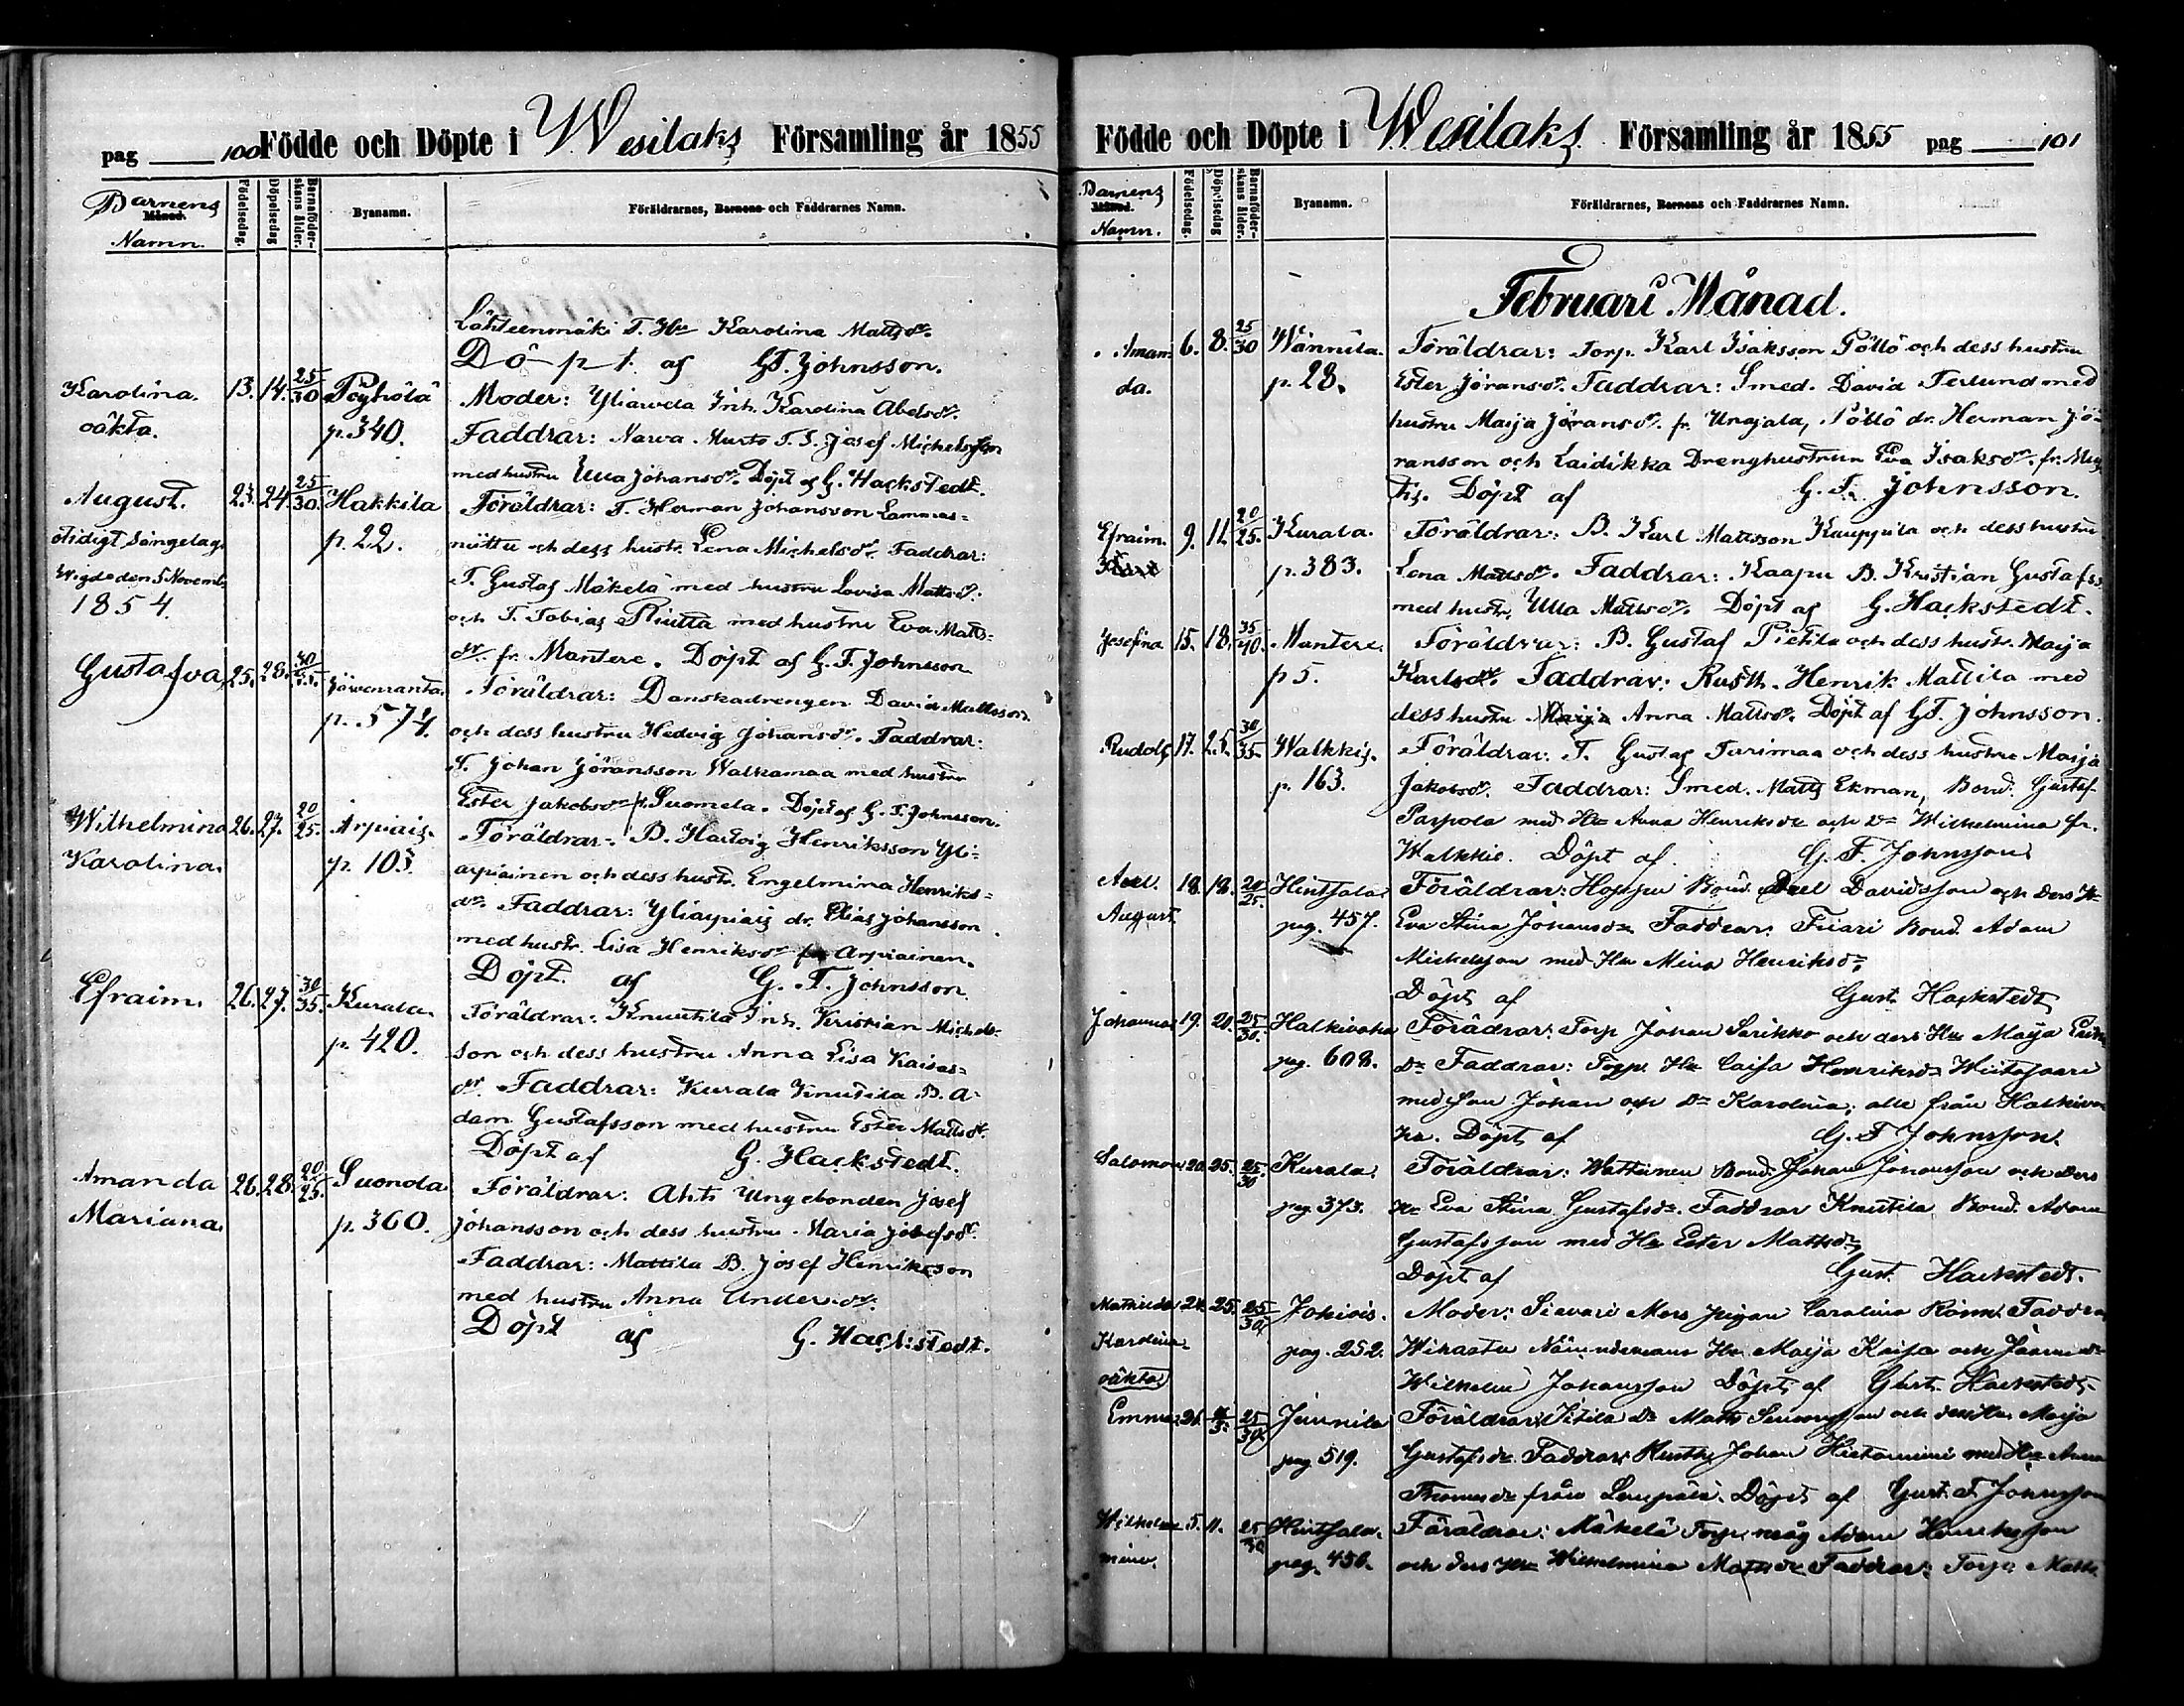 pag 100 Födde och Döpte i Wesilaks Församling år 1855
Barnens Namn. Månad. Födelsedag. Döpelsedag Barnaföderskans ålder. Byanamn. Föräldrarnes, Barnens och Faddrarnes Namn.
Lähteenmäki T. Hu Karolina Mattsdr.
Döpt af G.F. Johnsson.
Karolina. 13. 14. 25/30 Pöyhölä Moder: Yliawela Inh. Karolina Abelsdr.
oäkta. p. 340. Faddrar: Narwa Murto T. S. Josef Michelsson
med hustru Ulla Johansdr. Döpt af G. Hackstedt.
August. 23. 24. 25/30. Hakkila Föräldrar: T. Herman Johansson Lammas-
otidigt sängelag. p. 22. niittu och dess hustr. Lena Michelsdr. Faddrar:
Wigde den 5 Novemb. T. Gustaf Mäkelä med hustru Lovisa Mattsdr.
1854 och T. Tobias med hustru Eva Matts-
dr. fr. Mantere. Döpt af G. F. Johnsson
Gustafva 25. 28. Järwenranta. Föräldrar: Danskadrengen David Mattsson
p. 574. och dess hustru Hedvig Johansdr. Faddrar:
T. Johan Jöransson Walkamaa med hustru
Ester Jakobsdr fr. Suomela. Döpt af G. F. Johnsson.
Wilhelmina 26. 27. 20/25. Arpiais. Föräldrar: B. Hartvig Henriksson Yli-
Karolina. p. 103. arpiainen och dess hustr. Engelmina Henriks-
dr. Faddrar: Yliarpiais dr. Elias Johansson
med hustr. Lisa Henriksdr Arpiainen.
Döpt af G. F. Johnsson.
Efraim. 26. 27. 30/35. Kurala. Föräldrar: Knuutila Inh. Kristian Michels-
p. 420. son och dess hustru Anna Lisa Kaisas-
dr. Faddrar: Kurala Knutila B. A-
dam Gustafsson med hustru Ester Mattsdr.
Döpt af G. Hackstedt.
Amanda 26. 28. 20/25. Suonola Föräldrar: Ahti Ungebonden Josef
Mariana. p. 360. Johansson och dess hustru Maria Josefsdr.
Faddrar: Mattila B. Josef Henriksson
med hustru Anna Andersdr.
Döpt af G. Hackstedt.
Födde och Döpte i Wesilaks Församling år 1855 pag 101
Barnens Namn. Månad. Födelsedag. Döpelsedag Barnaföderskans ålder. Byanamn. Föräldrarnes, Barnens och Faddrarnes Namn.
Februari Månad.
Aman- 6. 8. 25/30 Wännilä. Föräldrar: Torp. Karl Isaksson Pöllö och dess hustru
da. p. 28. Ester Jöransdr. Faddrar: Smed. David Terlund med
hustru Maija Jöransdr. fr. Ungjala, Pöllö dr. Herman Jö-
ransson och Laidikka Drenghustrun Eva Isaksdr. fr.
Döpt af G. F. Johnsson.
Efraim. 9. 11. 20/25. Kurala. Föräldrar: B. Karl Mattsson Kauppila och dess hustru
p. 383. Lena Mattsdr. Faddrar: Kaapu B. Kristian Gustafss.
med hustr. Ulla Mattsdr. Döpt af G. Hackstedt.
Josefina 15. 18. 35/40. Mantere. Föräldrar: B. Gustaf Pietilä och dess hustr. Maija
p 5. Karlsdr. Faddrar: Rusth. Henrik Mattila med
dess hustru Maija Anna Mattsdr. Döpt af G.F. Johnsson.
Rudolf 17. 25. 30/35. Walkkis. Föräldrar: T. Gustaf Turimaa och dess hustru Maija
p. 163. Jakobsdr. Faddrar: Smed. Matts Ekman, Bond. Gustaf
Parpola med Hu Anna Henriksdr och Dr Wilhelmina fr.
Walkkis. Döpt af G. F. Johnsson
Axel. 18. 18. 20/25. Hintsala. Föräldrar: Hoppu Bond. Axel Davidsson och dess Hu
August. pag. 457. Eva Stina Johansdr. Faddrar: Bond. Adam
Michelsson med Hu Mina Henriksdr.
Döpt af Gust. Hackstedt
Johannes 19. 21. 25/30. Halkivaha Föräldrar: Torp Johan Sarikko och dess Hu Maija
pag. 608. Dr Faddrar: Torp. Hu Caisa Henriksdr
med son Johan och Dr Karolina, alla från Halkiva-
ha. Döpt af G. F Johnsson.
Salomon 20. 25. 25/30 Kurala. Föräldrar: Bond. Johan Johansson och dess
pag. 373. Hu Eva Stina Gustafsdr. Faddrar Knutila Bond. Adam
Gustafsson med Hu Ester Mattsdr
Döpt af Gust. Hackstedt.
Mathilda 24. 25. 25/30 Jokiois. Moder: Siavari Mors pigan Carolina Faddrar
Karolina pag. 252. Nämndemans Hu Maija Kaisa och
oäkta) Wilhelm Johansson Döpt af Gust. Hackstedt.
Emma 25/30 Junnila Föräldrar: Dr Matts och dess Hu Maija
pag 519. Gustafsdr. Faddrar: Rusth. Johan med Hu Anna
Thomasdr från Lempälä. Döpt af Gust. F Johnsson
Wilhel- 5. 11. 25/30 Hintsala. Föräldrar: Mäkelä Torp. måg Adam Henriksson
mina. pag. 450. och dess Hu Wilhelmina Mattsdr Faddrar: Torp. Matts